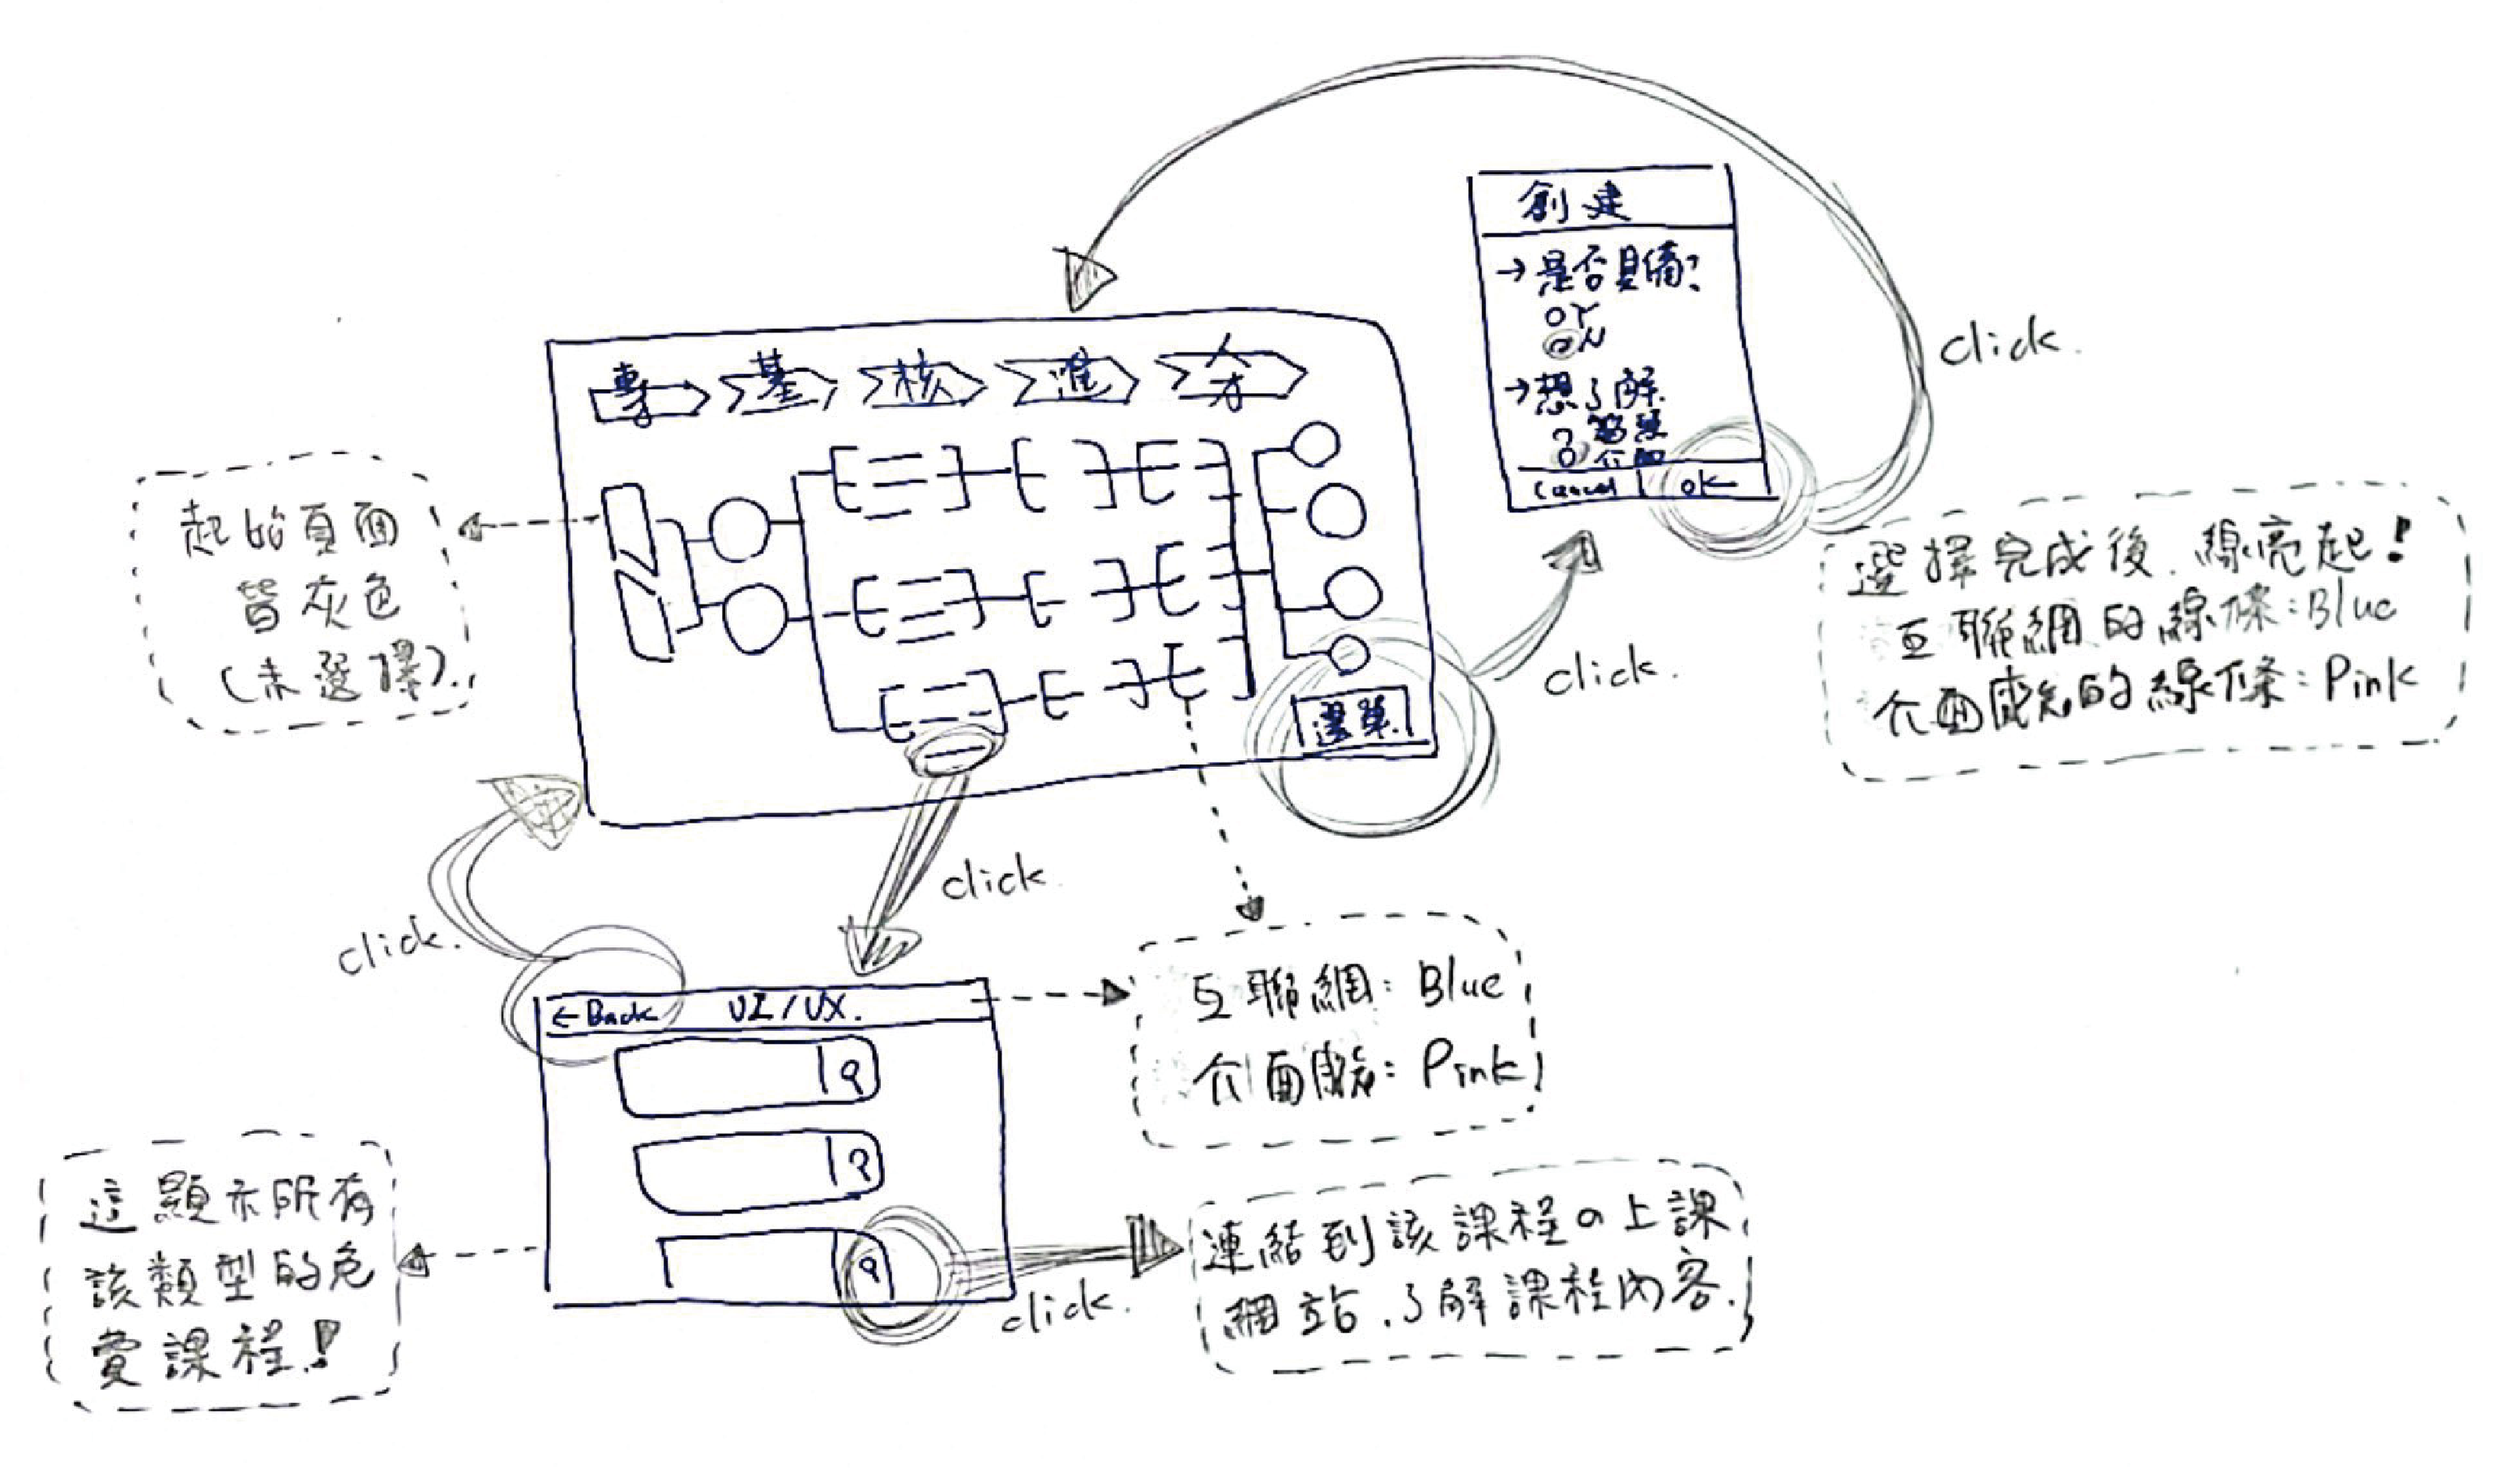 創建
→是否具備?
○Y
○N
→想了解.
Cancel OK
click.
專 基 核 進 人才
起始頁面
皆灰色
(未選擇).
選擇完成後.線亮起!
互聯網的線條:Blue
介面感知的線條:Pink
click.
選單
click.
click.
←Back UI/UX.
互聯網:Blue
介面感知:Pink
這顯示所有
該類型的免
費課程!
連結到該課程の上課
網站.了解課程內容.
click.